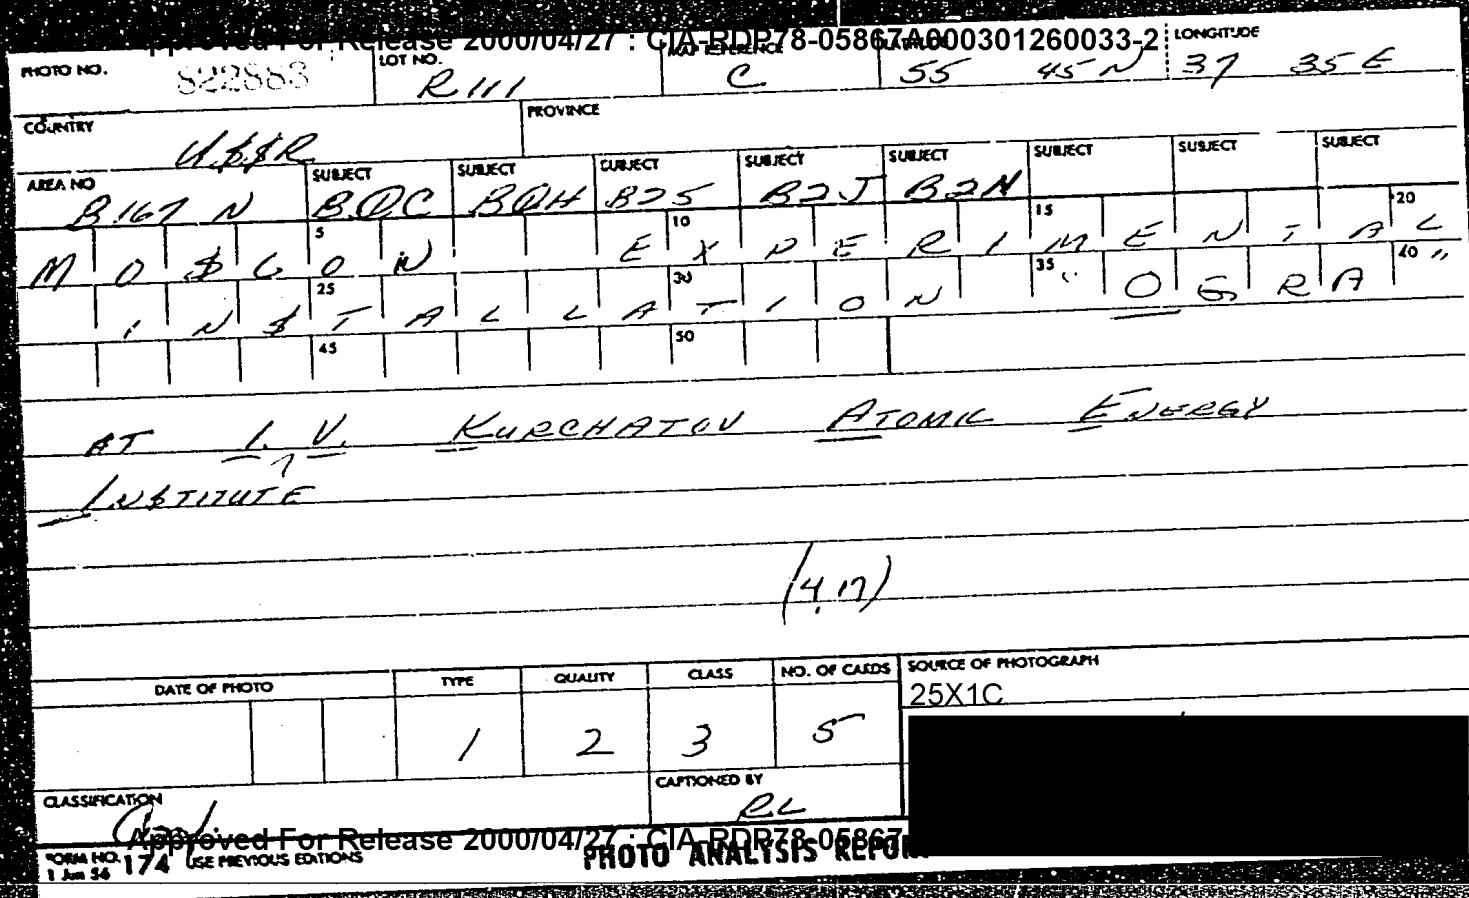 Approved For Release 2000/04/27 : CIA-RDP78-05867A000301260033-2
PHOTO NO. 822883 LOT NO. R 111 MAP REFERENCE C LATITUDE 55 45 N LONGITUDE 37 35 E
COUNTRY U$$R PROVINCE
AREA NO B167 N SUBJECT BQC SUBJECT BQH SUBJECT B25 SUBJECT B2J SUBJECT B2N SUBJECT SUBJECT SUBJECT
5 10 15 20
MO$COW EXPERIMENTAL
25 30 35 40
IN$TALLATION "OGRA"
45 50
AT I. V. KURCHATOV ATOMIC ENERGY
IN$TITUTE
(4,17)
DATE OF PHOTO TYPE QUALITY CLASS NO. OF CARDS SOURCE OF PHOTOGRAPH
25X1C
1 2 3 5
CLASSIFICATION CAPTIONED BY
RL
Approved For Release 2000/04/27 : CIA-RDP78-05867
FORM NO. 174 USE PREVIOUS EDITIONS PHOTO ANALYSIS REPOR
1 Jun 56